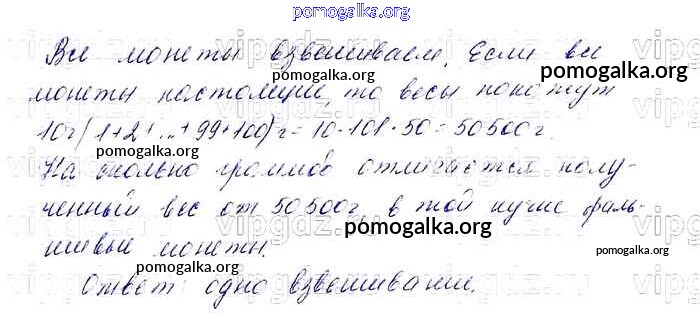 pomogalka.org
Все монеты взвешиваем. Если все
pomogalka.org pomogalka.org
монеты настоящие, то весы покажут
10г(1+2+...+99+100)г = 10·101·50 = 50500г.
pomogalka.org
На сколько граммов отличается полу-
ченный вес от 50500г, в той кучке фаль-
pomogalka.org pomogalka.org
шивые монеты.
pomogalka.org pomogalka.org
Ответ: одно взвешивание.